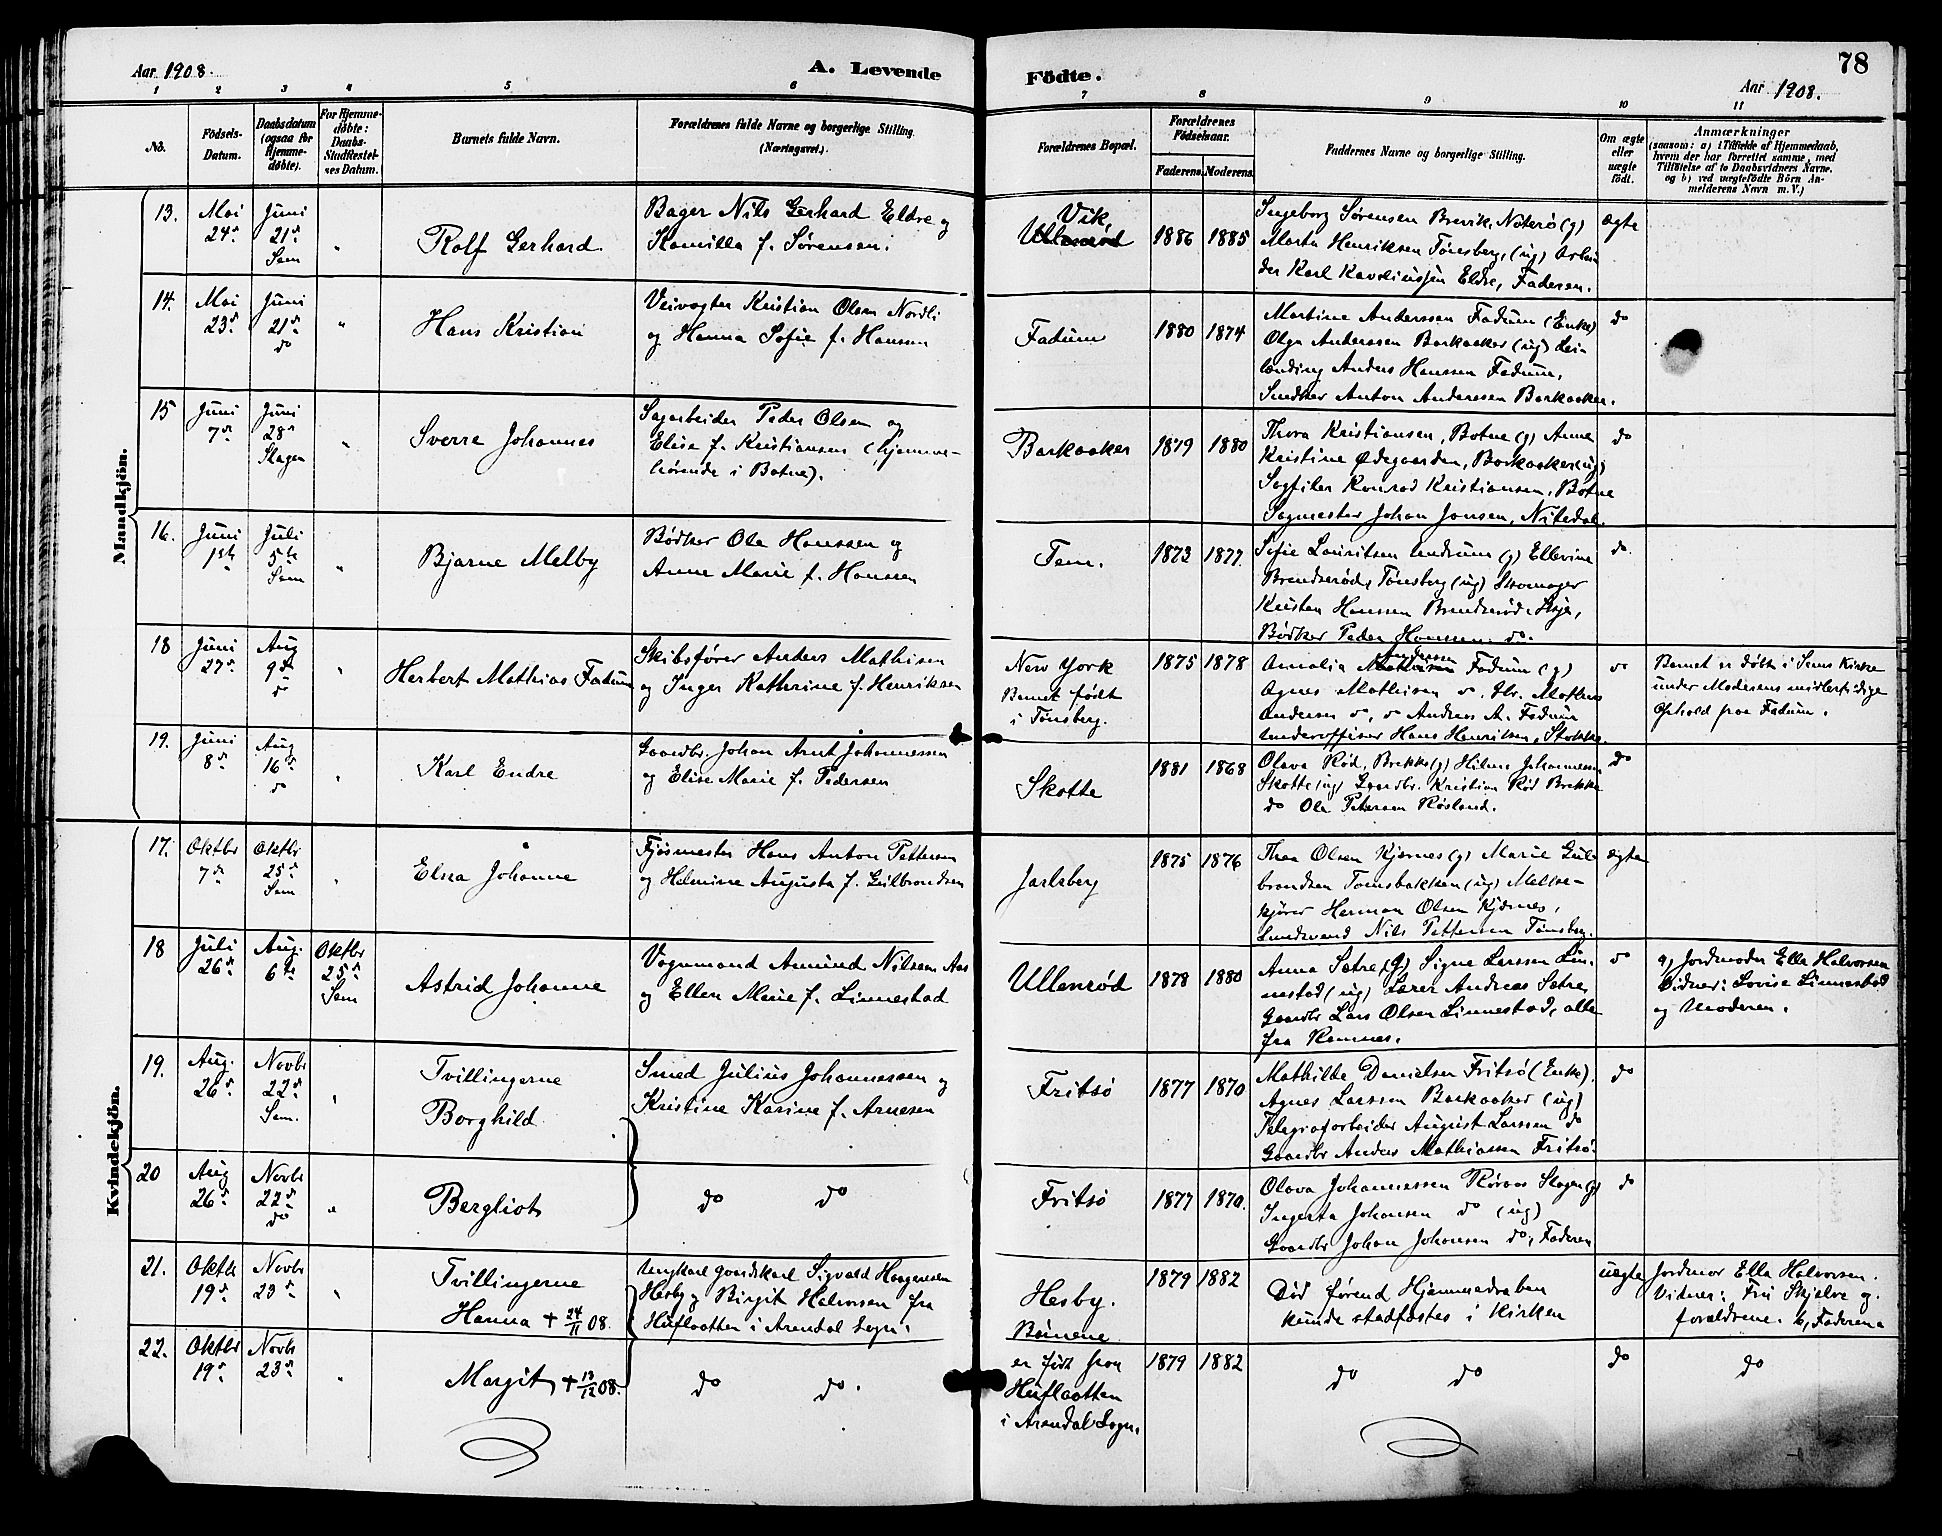 Aar 1908.
A. Levende
Födte.
78
Aar 1908.
1 2 3 4 5 6 7 8 9 10 11
No.
Födsels-
Datum.
Daabsdatum
(ogsaa for
Hjemme-
døbte).
For Hjemme-
døbte:
Daabs-
Stadfæstel-
ses Datum.
Barnets fulde Navn.
Forældrenes fulde Navne og borgerlige Stilling.
(Næringsvei.)
Forældrenes Bopæl.
Forældrenes
Födselsaar.
Faderens. Moderens.
Faddernes Navne og borgerlige Stilling.
Om ægte
eller
uægte
født.
Anmærkninger
(saasom: a) i Tilfælde af Hjemmedaab,
hvem der har forrettet samme, med
Tilføielse af to Daabsvidners Navne.
og b) ved uægtefödte Börn An-
melderens Navn m.V.)
Mandkjön.
13.
Mai
24de
Juni
21de
Sem
"
Rolf Gerhard
Bager Nils Gerhard Eldre og
Kamilla f. Sørensen.
Vik
Ullenrød
1886 1885
Ingeborg Sørensen Brevik, Nøterø (g)
Marta Henriksen Tønsberg, (ug) Arbei
der Karl Eldre, Faderen.
ægte
14.
Mai
23de
Juni
21de
do
"
Hans Kristian
Veivogter Kristian Olsen Nordli
og Hanna Sofie f. Hansen
Fadum
1880 1874
Martine Anderssen Fadum (Enke)
Olga Anderssen Barkaaker (ug) Lei-
lænding Anders Hanssen Fadum,
Snedker Anton Anderssen Barkaaker.
do
15
Juni
7de
Juni
28de
Slagen
"
Sverre Johannes
Sagarbeider Peder Olsen og
Elise f. Kristiansen (hjemme-
hørende i Botne).
Barkaaker
1879 1880
Thora Kristiansen, Botne (g) Anne
Kristine Ødegaarden, Barkaaker (ug)
Sagfiler Konrad Kristiansen, Botne
Sagmester Johan Jonsen, Nitedal.
do
16.
Juni
1ste
Juli
5te
Sem
"
Bjarne Melby
Bødker Ole Hanssen og
Anne Marie f. Hanssen
Tem.
1873 1877.
Sofie Lauritsen Undrum (g) Ellevine
Brendserød, Tønsberg (ug) Skomager
Kristen Hanssen Brendserød,
Bødker Peder Hanssen do.
do
18
Juni
27de
Aug
9de
do
"
Herbert Mathias Fadum
Skibsfører Anders Mathisen
og Inger Kathrine f. Henriksen
New York
Barnet født
i Tønsberg.
1875 1878
Anderssen
Amalia Mathisen Fadum (g)
Agnes Mathisen do. Hr. Mathias
Andersen do, do Andreas A. Fadum
Underofficer Hans Henriksen, Stokke.
do
Barnet er døbt i Sems Kirke
under Moderens midlertidige
Ophold paa Fadum.
19.
Juni
8de
Aug
16de
do
"
Karl Endre
Gaardbr. Johan Arnt Johannessen
og Elise Marie f. Pedersen
Skotte
1881 1868
Olava Rød, Brekke (g) Hilma Johannessen
Skotte (ug) Gaardbr. Kristian Rød Brekke
do Ole Petersen Røsland.
do
Kvindekjön.
17.
Oktbr
7de
Oktbr
25de
Sem
"
Elna Johanne
Fjøsmester Hans Anton Pettersen
og Helmine Augusta f. Gulbrandsen
Jarlsberg
1875 1876
Thea Olsen Kjærnes (g) Marie Gul-
brandsen Tomsbakken (ug) Melke-
kjører Herman Olsen Kjærnes,
Nils Pettersen Tønsberg.
ægte
18
Juli
26de
Aug.
6te
Oktbr
25de
Sem
Astrid Johanne
Vognmand Amund Nilssen Aas
og Ellen Marie f. Linnestad
Ullenrød
1878 1880
Anna Sætre (g) Signe Larssen Lin-
nestad (ug) Lærer Andreas Sætre
Gaardbr Lars Olsen Linnestad, alle
fra Ramnes.
do
a) Jordmoder Ella Halvorsen
Vidner: Lovise Linnestad
og Moderen.
19.
Aug.
26de
Novbr
22de
Sem.
"
Tvillingerne
Borghild
Smed Julius Johannessen og
Kristine Karine f. Arnesen
Fritsø
1877 1870
Mathilde Danielsen Fritsø (Enke).
Agnes Larssen Barkaaker (ug)
Telegrafarbeider August Larssen do
Gaardbr Anders Mathiassen Fritsø.
do
20
Aug
26de
Novbr
22de
do
"
Bergliot
do do
Fritsø
1877 1870.
Olava Johannessen Røraas Slagen (g)
Johansen do (ug)
Gaardbr Johan Johansen do, Faderen
do
21.
Oktbr
19de
Novbr
23de
"
Tvillingerne
Hanna + 24/11 08.
Ungkarl gaardskarl Sigvald Haagensen
Hesby og Birgit Halvorsen fra
Huflaatten i Arendal Sogn.
Hesby.
Børnene
1879 1882
Død førend Hjemmedaaben
kunde stadfæstes i Kirken
uægte
Jordmor Ella Halvorsen.
Vidner: Fru Skjelve og
forældrene. b, Faderen
22.
Oktbr
19de
Novbr
23de
"
Margit + 13/12 08.
do do.
er født paa
Huflaatten
i Arendal Sogn.
1879 1882
do do
do
do